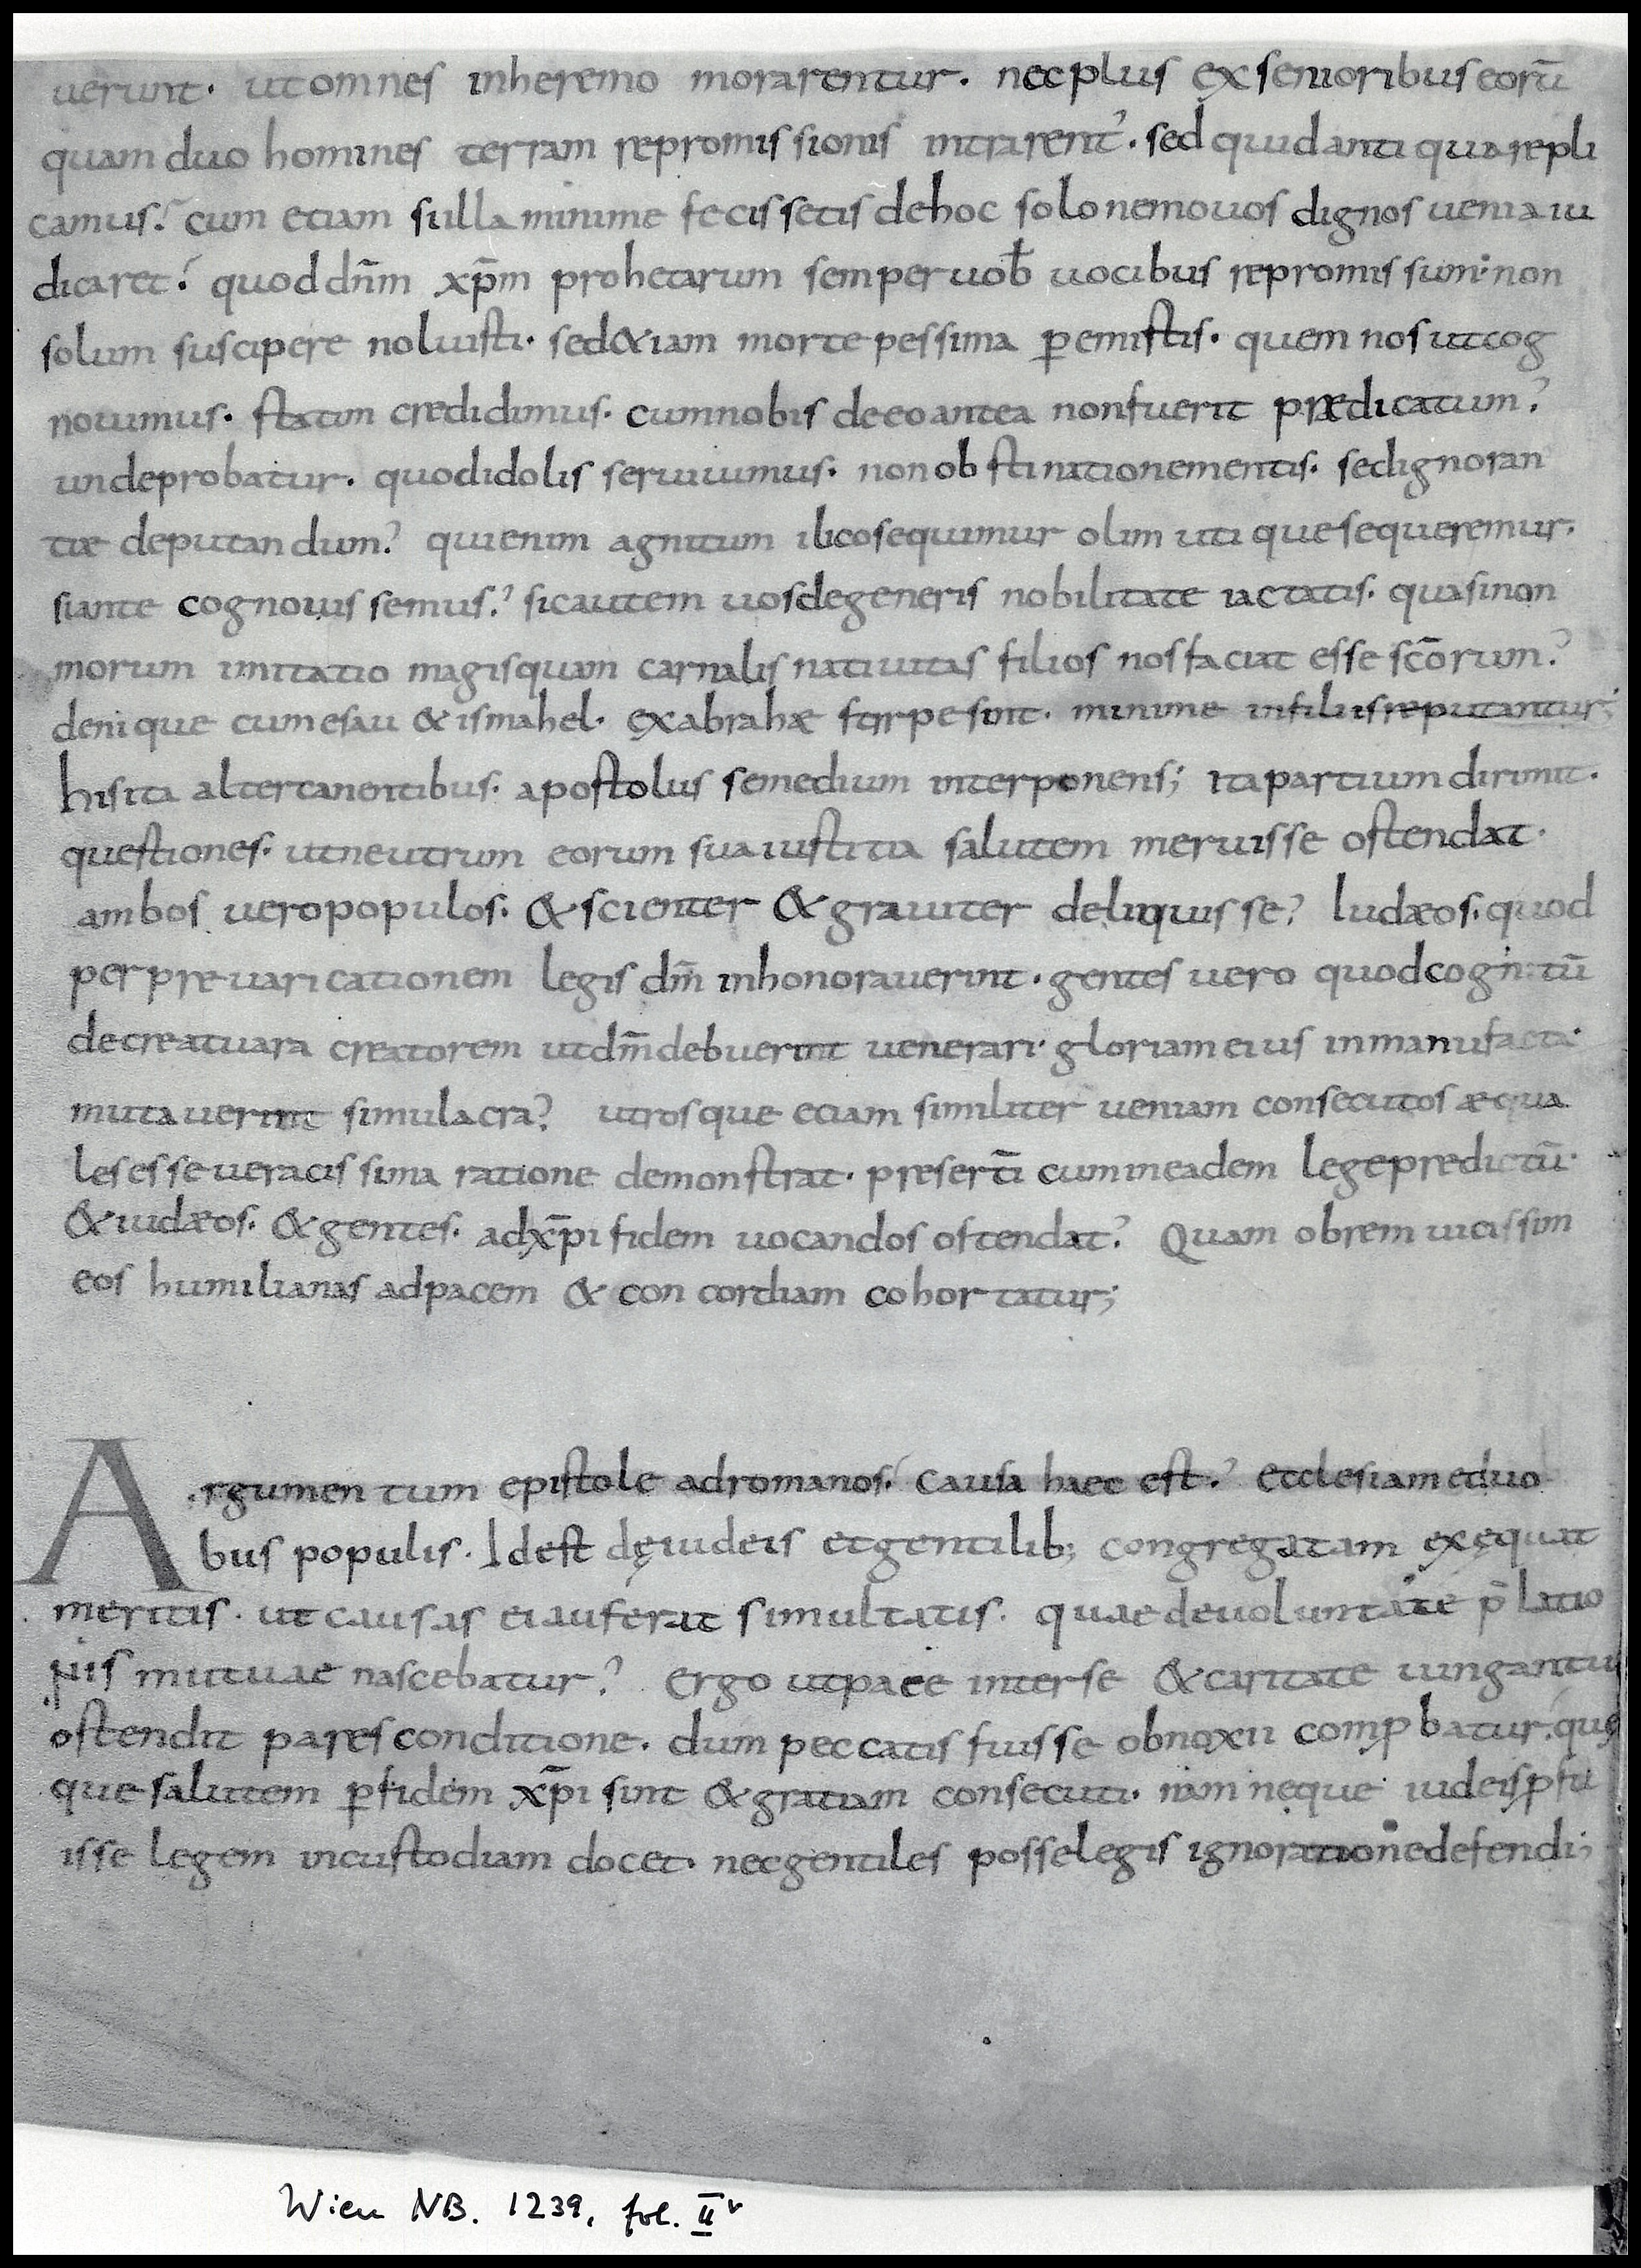 uerunt. ut omnes inheremo morarentur. nec plus ex senioribus eorū
quam duo homines terram repromissionis intrarent? sed quid antiqua repli
camus? cum etiam si illa minime fecissetis de hoc solo nemo uos dignos uenia iu
dicaret? quod dn̄m xp̄m prohetarum semper uob̄ uocibus repromissum. non
solum suscipere noluisti. sed &iam morte pessima ꝑemistis. quem nos ut cog
nouimus. statim credidimus. cum nobis de eo antea non fuerit prædicatum?
unde probatur. quod idolis seruiuimus. non obstinatione mentis. sed ignoran
tiæ deputandum? qui enim agnitum ilico sequimur olim utique sequeremur.
si ante cognouissemus? sic autem uos de generis nobilitate iactatis. quasi non
morum imitatio magis quam carnalis natiuitas filios nos faciat esse sc̄orum?
denique cum esau & ismahel. ex abrahæ stirpe sint. minime in filiis reputantur;
his ita altercanentibus. apostolus se medium interponens; ita partium dirimit.
questiones. ut neutrum eorum sua iustitia salutem meruisse ostendat.
ambos uero populos. & scienter & grauiter deliquisse? Iudæos. quod
per preuaricationem legis dm̄ inhonorauerint. gentes uero quod cognitū
de creatuara creatorem ut dm̄ debuerint uenerari. gloriam eius in manufacta.
mutauerint simulacra? utrosque etiam similiter ueniam consecutos æqua
les esse ueracissima ratione demonstrat. presertī cum in eadem lege predictū.
& iudæos. & gentes. ad xp̄i fidem uocandos ostendat? Quam obrem uicissim
eos humilianas ad pacem & concordiam cohortatur;
Argumentum epistole ad romanos. causa haec est? ecclesiam e duo
bus populis. Idest dę iudeis et gentilib; congregatam exęquat
meritis. ut causas ei auferat simultatis. quae de uoluntate p̄latio
nis mutuae nascebatur? ergo ut pace inter se & caritate iungantu
ostendit pares conditione. dum peccatis fuisse obnoxii comꝓbatur. quę
que salutem ꝑ fidem xp̄i sint & gratiam consecuti. nam neque iudeis ꝓfu
isse legem in custodiam docet. nec gentiles posse legis ignoratione defendi;
Wien NB. 1239, fol. II v